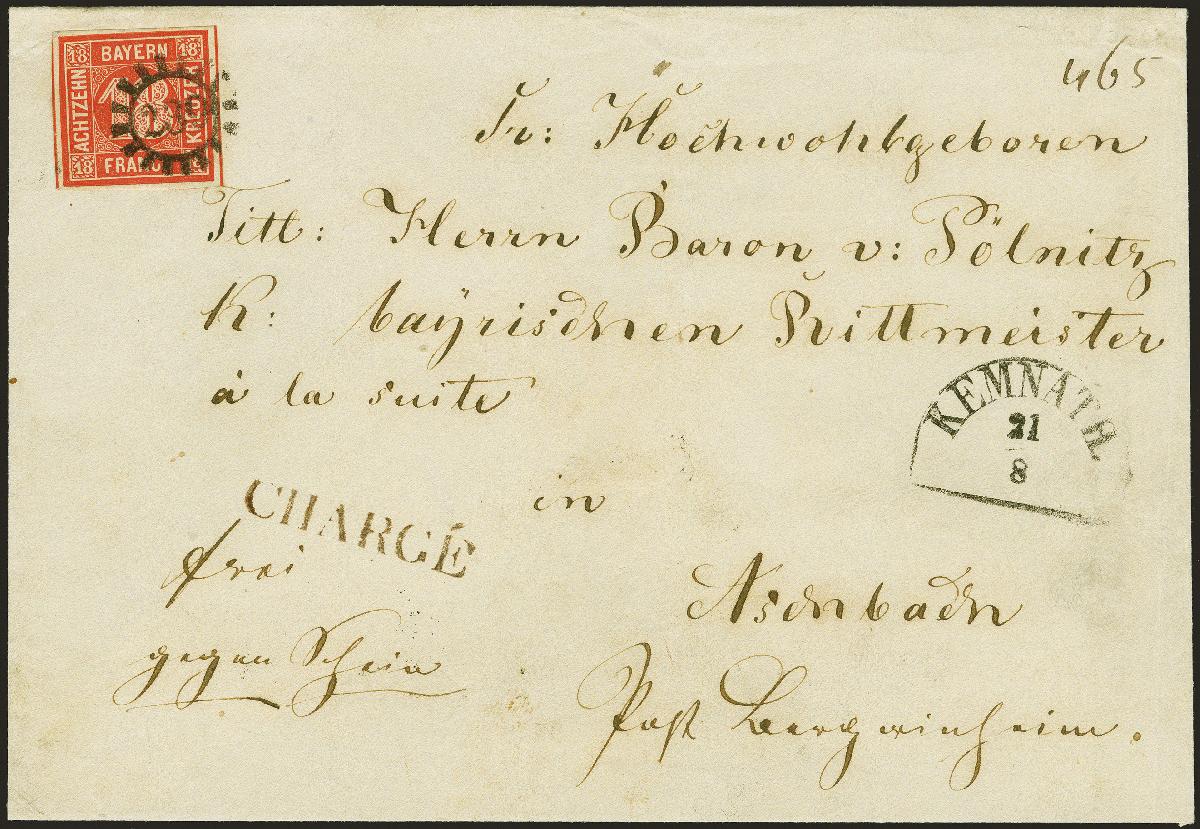 18 BAYERN 18
ACHTZEHN
18
KREUZER
18 FRANCO
465
Sr: Hochwohlgeboren
Titl: Herrn Baron v: Pölnitz
K: bayrischen Rittmeister
à la suite
KEMNATH.
21
8
in
CHARGÉ
frei
Aschbach
gegen Schein
Post Burgwinheim.